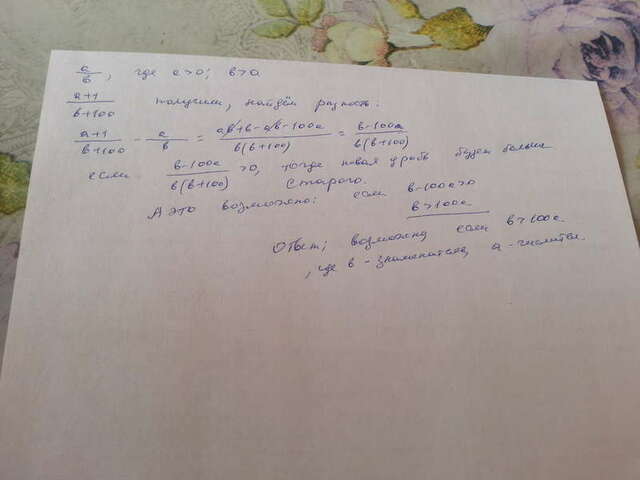 a/b, где a>0; b>0
(a+1)/(b+100) получили, найдём разность:
(a+1)/(b+100) - a/b = (ab+b-ab-100a)/(b(b+100)) = (b-100a)/(b(b+100))
если (b-100a)/(b(b+100)) >0, тогда новая дробь будет больше
старого.
А это возможно: если b-100a>0
b>100a
Ответ; возможно если b>100a.
, где b - знаменатель, a - числител.